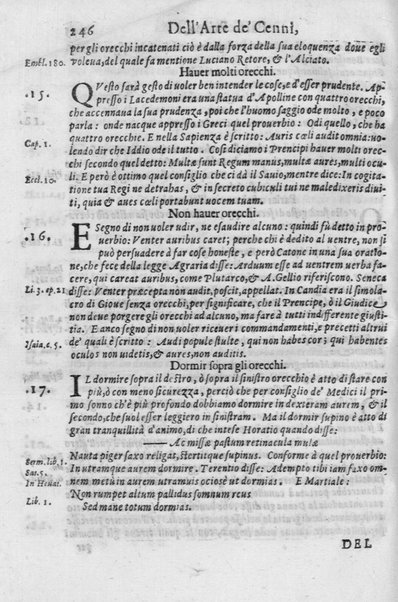 246 Dell'Arte de' Cenni,
per gli orecchi incatenati ciò è dalla forza della sua eloquenza doue egli
Embl. 180. voleua, del quale fa mentione Luciano Retore, & l'Alciato.
Hauer molti orecchi.
.15. QVesto sarà gesto di uoler ben intender le cose, e d'esser prudente. Ap-
presso i Lacedemoni era una statua d'Apolline con quattro orecchi,
che accennaua la sua prudenza, poi che l'huomo saggio ode molto, e poco
parla: onde nacque appresso i Greci quel prouerbio: Odi quello, che ha
quattro orecchie. E nella Sapienza è scritto: Auris cœli audit omnia: uo-
Cap. 1. lendo dir che Iddio ode il tutto. Cosi diciamo i Prencipi hauer molti orec-
chi secondo quel detto: Multæ sunt Regum manus, multæ aures, multi ocu
Eccl. 10. li. E però è ottimo quel consiglio che ci dà il Sauio, mentre dice: In cogita-
tione tua Regi ne detrahas, & in secreto cubiculi tui ne maledixeris diui-
ti, quia & aues cœli portabunt uocem tuam.
Non hauer orecchi.
.16. E Segno di non uoler udir, ne esaudire alcuno: quindi fù detto in pro-
uerbio: Venter auribus caret; perche chi è dedito al uentre, non si
può persuadere à far cose honeste, e però Catone in una sua oratio-
ne, che fece della legge Agraria disse: Arduum esse ad uentrem uerba fa-
cere, qui careat auribus, come Plutarco, & A. Gellio riferiscono. Seneca
Li. 3. ep. 21 disse: Venter præcepta non audit, poscit, appellat. In Candia era il simola-
cro di Gioue senza orecchi, per significare, che il Prencipe, ò il Giudice
non deue porgere gli orecchi ad alcuno, ma fare à tutti indifferente giusti-
tia. E anco segno di non uoler riceuer i commandamenti, e precetti altrui
Isaia. c. 5. de' quali è scritto: Audi popule stulte, qui non habes cor; qui habentes
oculos non uidetis, & aures, non auditis.
Dormir sopra gli orecchi.
.17. IL dormire sopra il destro, ò sopra il sinistro orecchio è atto di stare con
più, ò con meno sicurezza, perciò che per consiglio de' Medici il pri-
mo sonno ch'è più profondo dobbiamo dormire in dexteram aurem, & il
secondo, che suol'esser leggiero in sinistram. Ma il dormir supino è atto di
gran tranquillità d'animo, di che intese Horatio quando disse:
—— Ac missæ pastum retinacula mulæ
Serm. lib. 1. Nauta piger saxo religat, stertitque supinus. Conforme à quel prouerbio:
Sat. 5. In utramque aurem dormire. Terentio disse: Ademptо tibi iam faxo om
In Heaut. nem metũ in aurem utramuis ociosè ut dormias. E Martiale:
Lib. 1. Non rumpet altum pallidus somnum reus
Sed mane totum dormias.
DEL